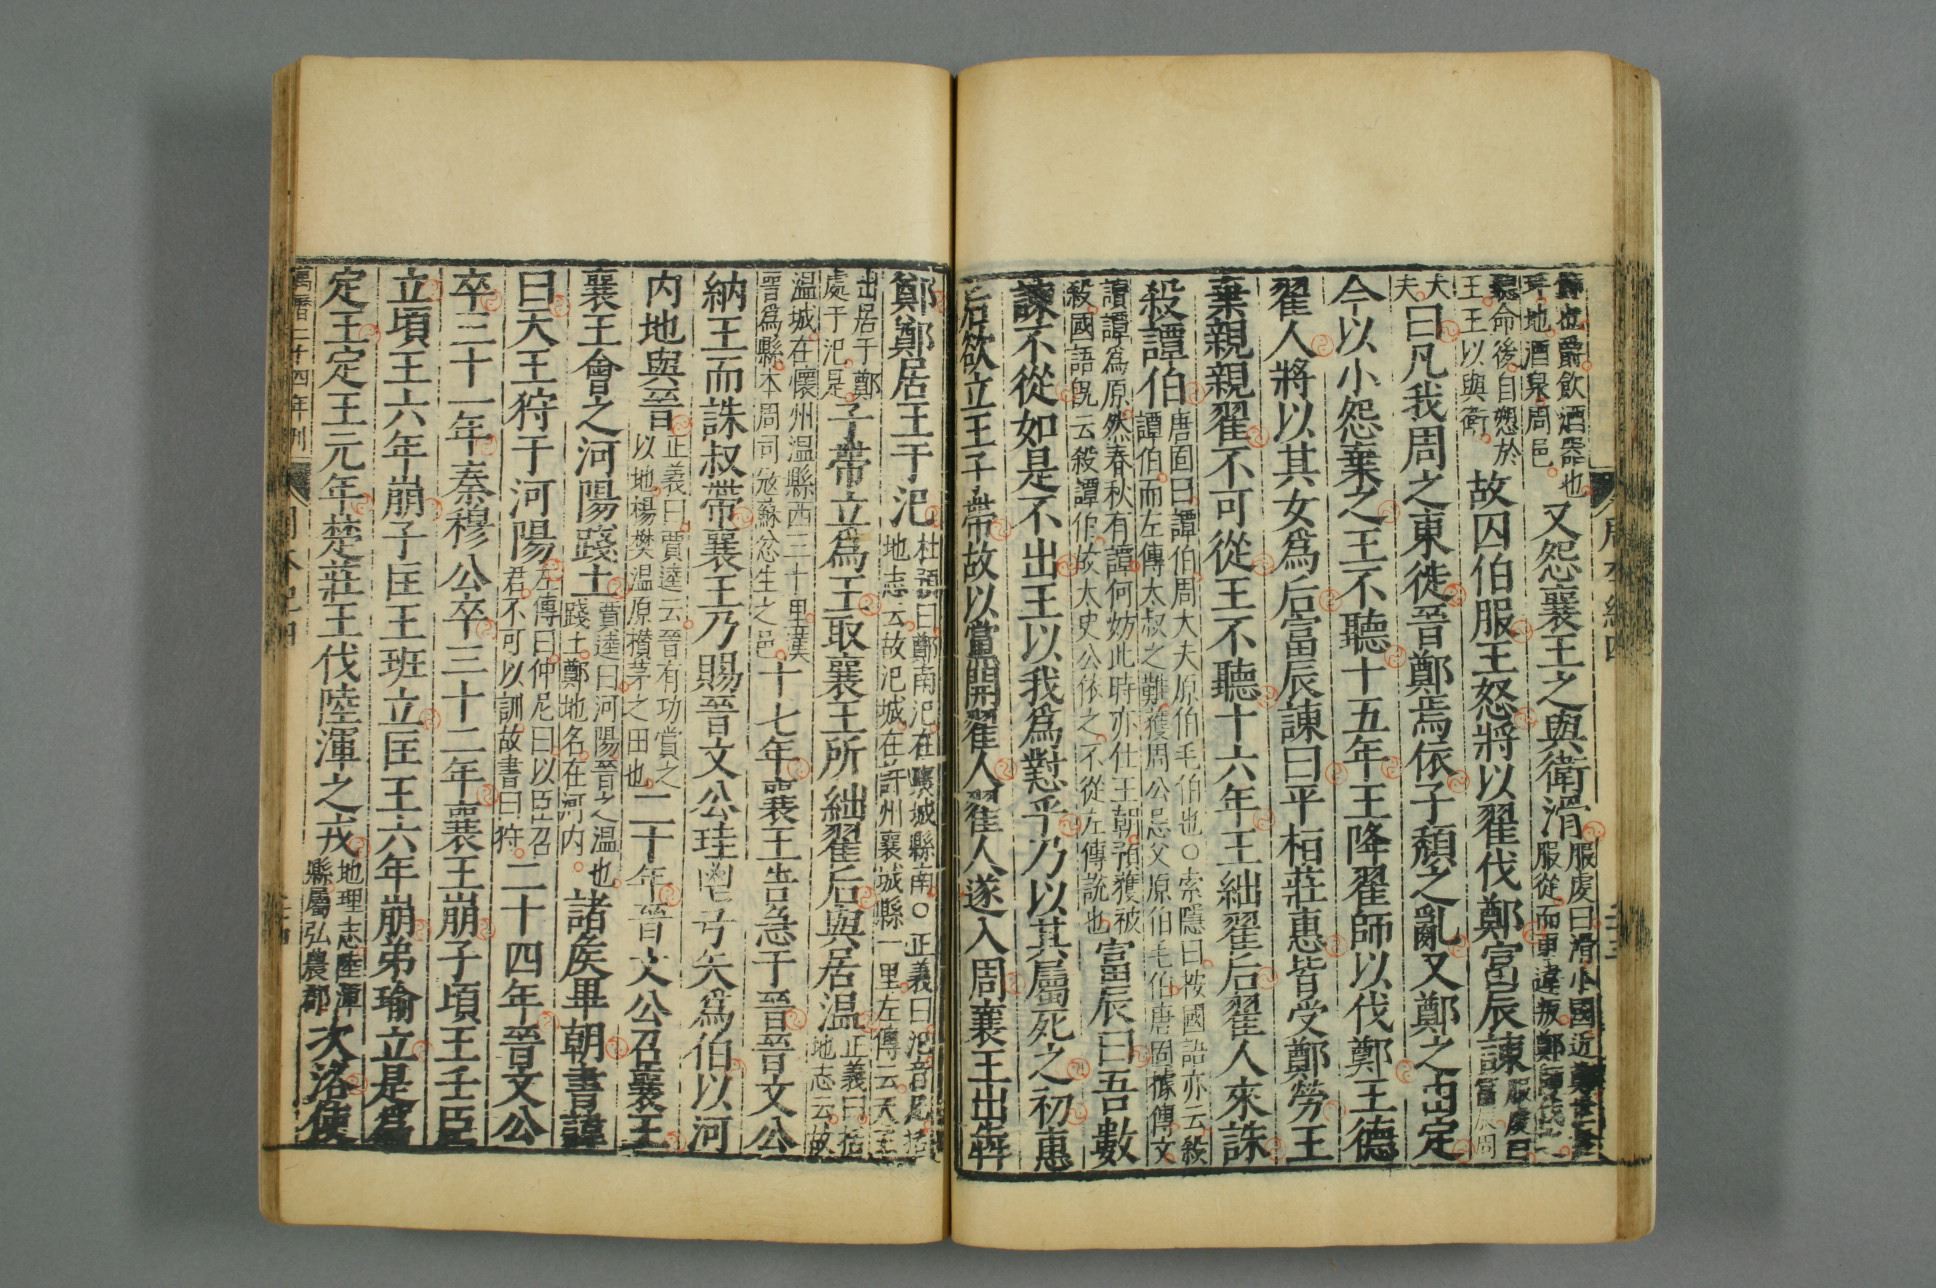 爵飲酒器也又怨襄王之與衛滑服虔曰滑小國近鄭
玶地酒泉周邑服從而更違叛鄭師伐之
聽命後自愬於
王王以與衛故囚伯服王怒將以翟伐鄭富辰諫服虔曰富辰周
大夫曰凡我周之東徙晉鄭焉依子頹之亂又鄭之由定
今以小怨棄之王不聽十五年王降翟師以伐鄭王德
翟人將以其女為后富辰諫曰平桓莊惠皆受鄭勞王
棄親親翟不可從王不聽十六年王絀翟后翟人來誅
殺譚伯唐固曰譚伯周大夫原伯毛伯也○索隱曰按國語亦云殺
譚伯而左傳太叔之難獲周公忌父原伯毛伯唐固據傳文
讀譚為原然春秋有譚何妨此時亦仕王朝預獲被
殺國語既云殺譚伯故太史公依之不從左傳說也富辰曰吾數
諫不從如是不出王以我為懟乎乃以其屬死之初惠
后欲立王子帶故以黨開翟人翟人遂入周襄王出奔
鄭鄭居王于氾杜預曰鄭南氾在襄城縣南○正義曰氾音凡括
地志云故氾城在許州襄城縣一里左傳云天王
出居于鄭
處于氾是子帶立為王取襄王所絀翟后與居溫正義曰括
地志云故
溫城在懷州溫縣西三十里漢
晉為縣本周司寇蘇忿生之邑十七年襄王告急于晉晉文公
納王而誅叔帶襄王乃賜晉文公珪鬯弓矢為伯以河
內地與晉正義曰賈逵云晉有功賞之
以地楊樊溫原欑茅之田也二十年晉文公召襄王
襄王會之河陽踐土賈逵曰河陽晉之溫也
踐土鄭地名在河內諸侯畢朝書諱
曰天王狩于河陽左傳曰仲尼曰以臣召
君不可以訓故書曰狩二十四年晉文公
卒三十一年秦穆公卒三十二年襄王崩子頃王壬臣
立頃王六年崩子匡王班立匡王六年崩弟瑜立是為
定王定王元年楚莊王伐陸渾之戎地理志陸渾
縣屬弘農郡次洛使
萬曆二十四年刊 周本紀四